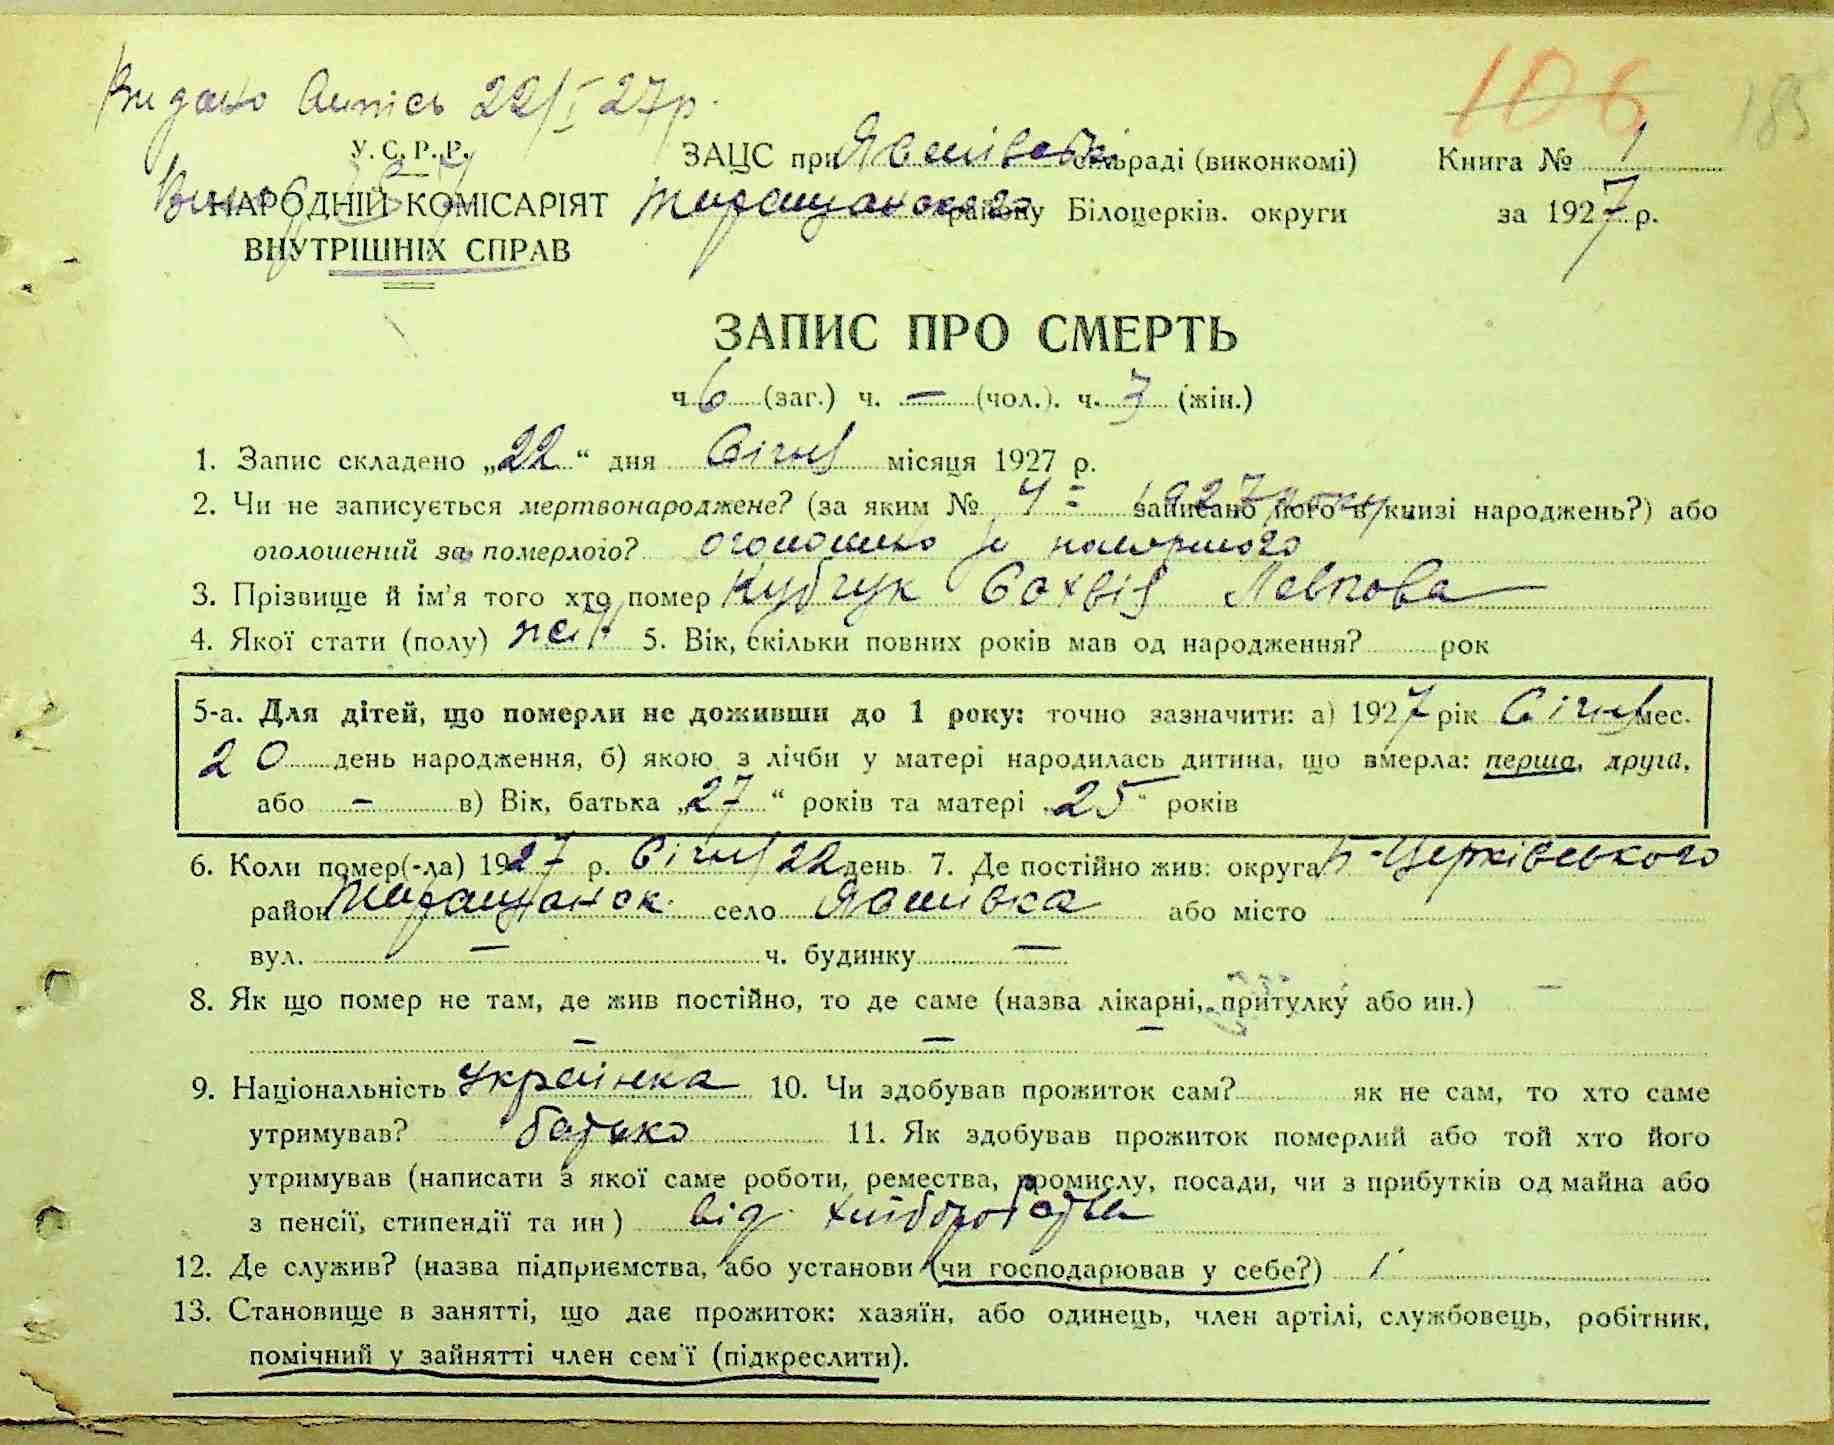 Видано Випись 22/I 27р.
106 185
У. С. Р. Р. ЗАЦС при Яснівській сільраді (виконкомі) Книга № 1
НАРОДНІЙ КОМІСАРІЯТ району Білоцерків. округи за 1927 р.
ВНУТРІШНІХ СПРАВ
ЗАПИС ПРО СМЕРТЬ
ч 6 (заг.) ч. — (чол.). ч. 3 (жін.)
1. Запис складено „22“ дня Січня місяця 1927 р.
2. Чи не записується мертвонароджене? (за яким № 4 = 1927 року записано його в книзі народжень?) або
оголошений за померлого? оголошено за помершого
3. Прізвище й ім'я того хто помер Кубчук Сохвія Левкова
4. Якої стати (полу) жін. 5. Вік, скільки повних років мав од народження? рок
5-а. Для дітей, що померли не доживши до 1 року: точно зазначити: а) 1927 рік Січня мес.
20 день народження, б) якою з лічби у матері народилась дитина, що вмерла: перша, друга,
або — в) Вік, батька „27“ років та матері „25“ років
6. Коли помер(-ла) 1927 р. Січня 22 день 7. Де постійно жив: округа Б-Церківського
район село або місто
вул. — ч. будинку —
8. Як що помер не там, де жив постійно, то де саме (назва лікарні, притулку або ин.) —
— — —
9. Національність Українка 10. Чи здобував прожиток сам? як не сам, то хто саме
утримував? батько 11. Як здобував прожиток померлий або той хто його
утримував (написати з якої саме роботи, ремества, промислу, посади, чи з прибутків од майна або
з пенсії, стипендії та ин) від хліборобства
12. Де служив? (назва підприємства, або установи (чи господарював у себе?)
13. Становище в занятті, що дає прожиток: хазяїн, або одинець, член артілі, службовець, робітник,
помічний у зайнятті член сем'ї (підкреслити).